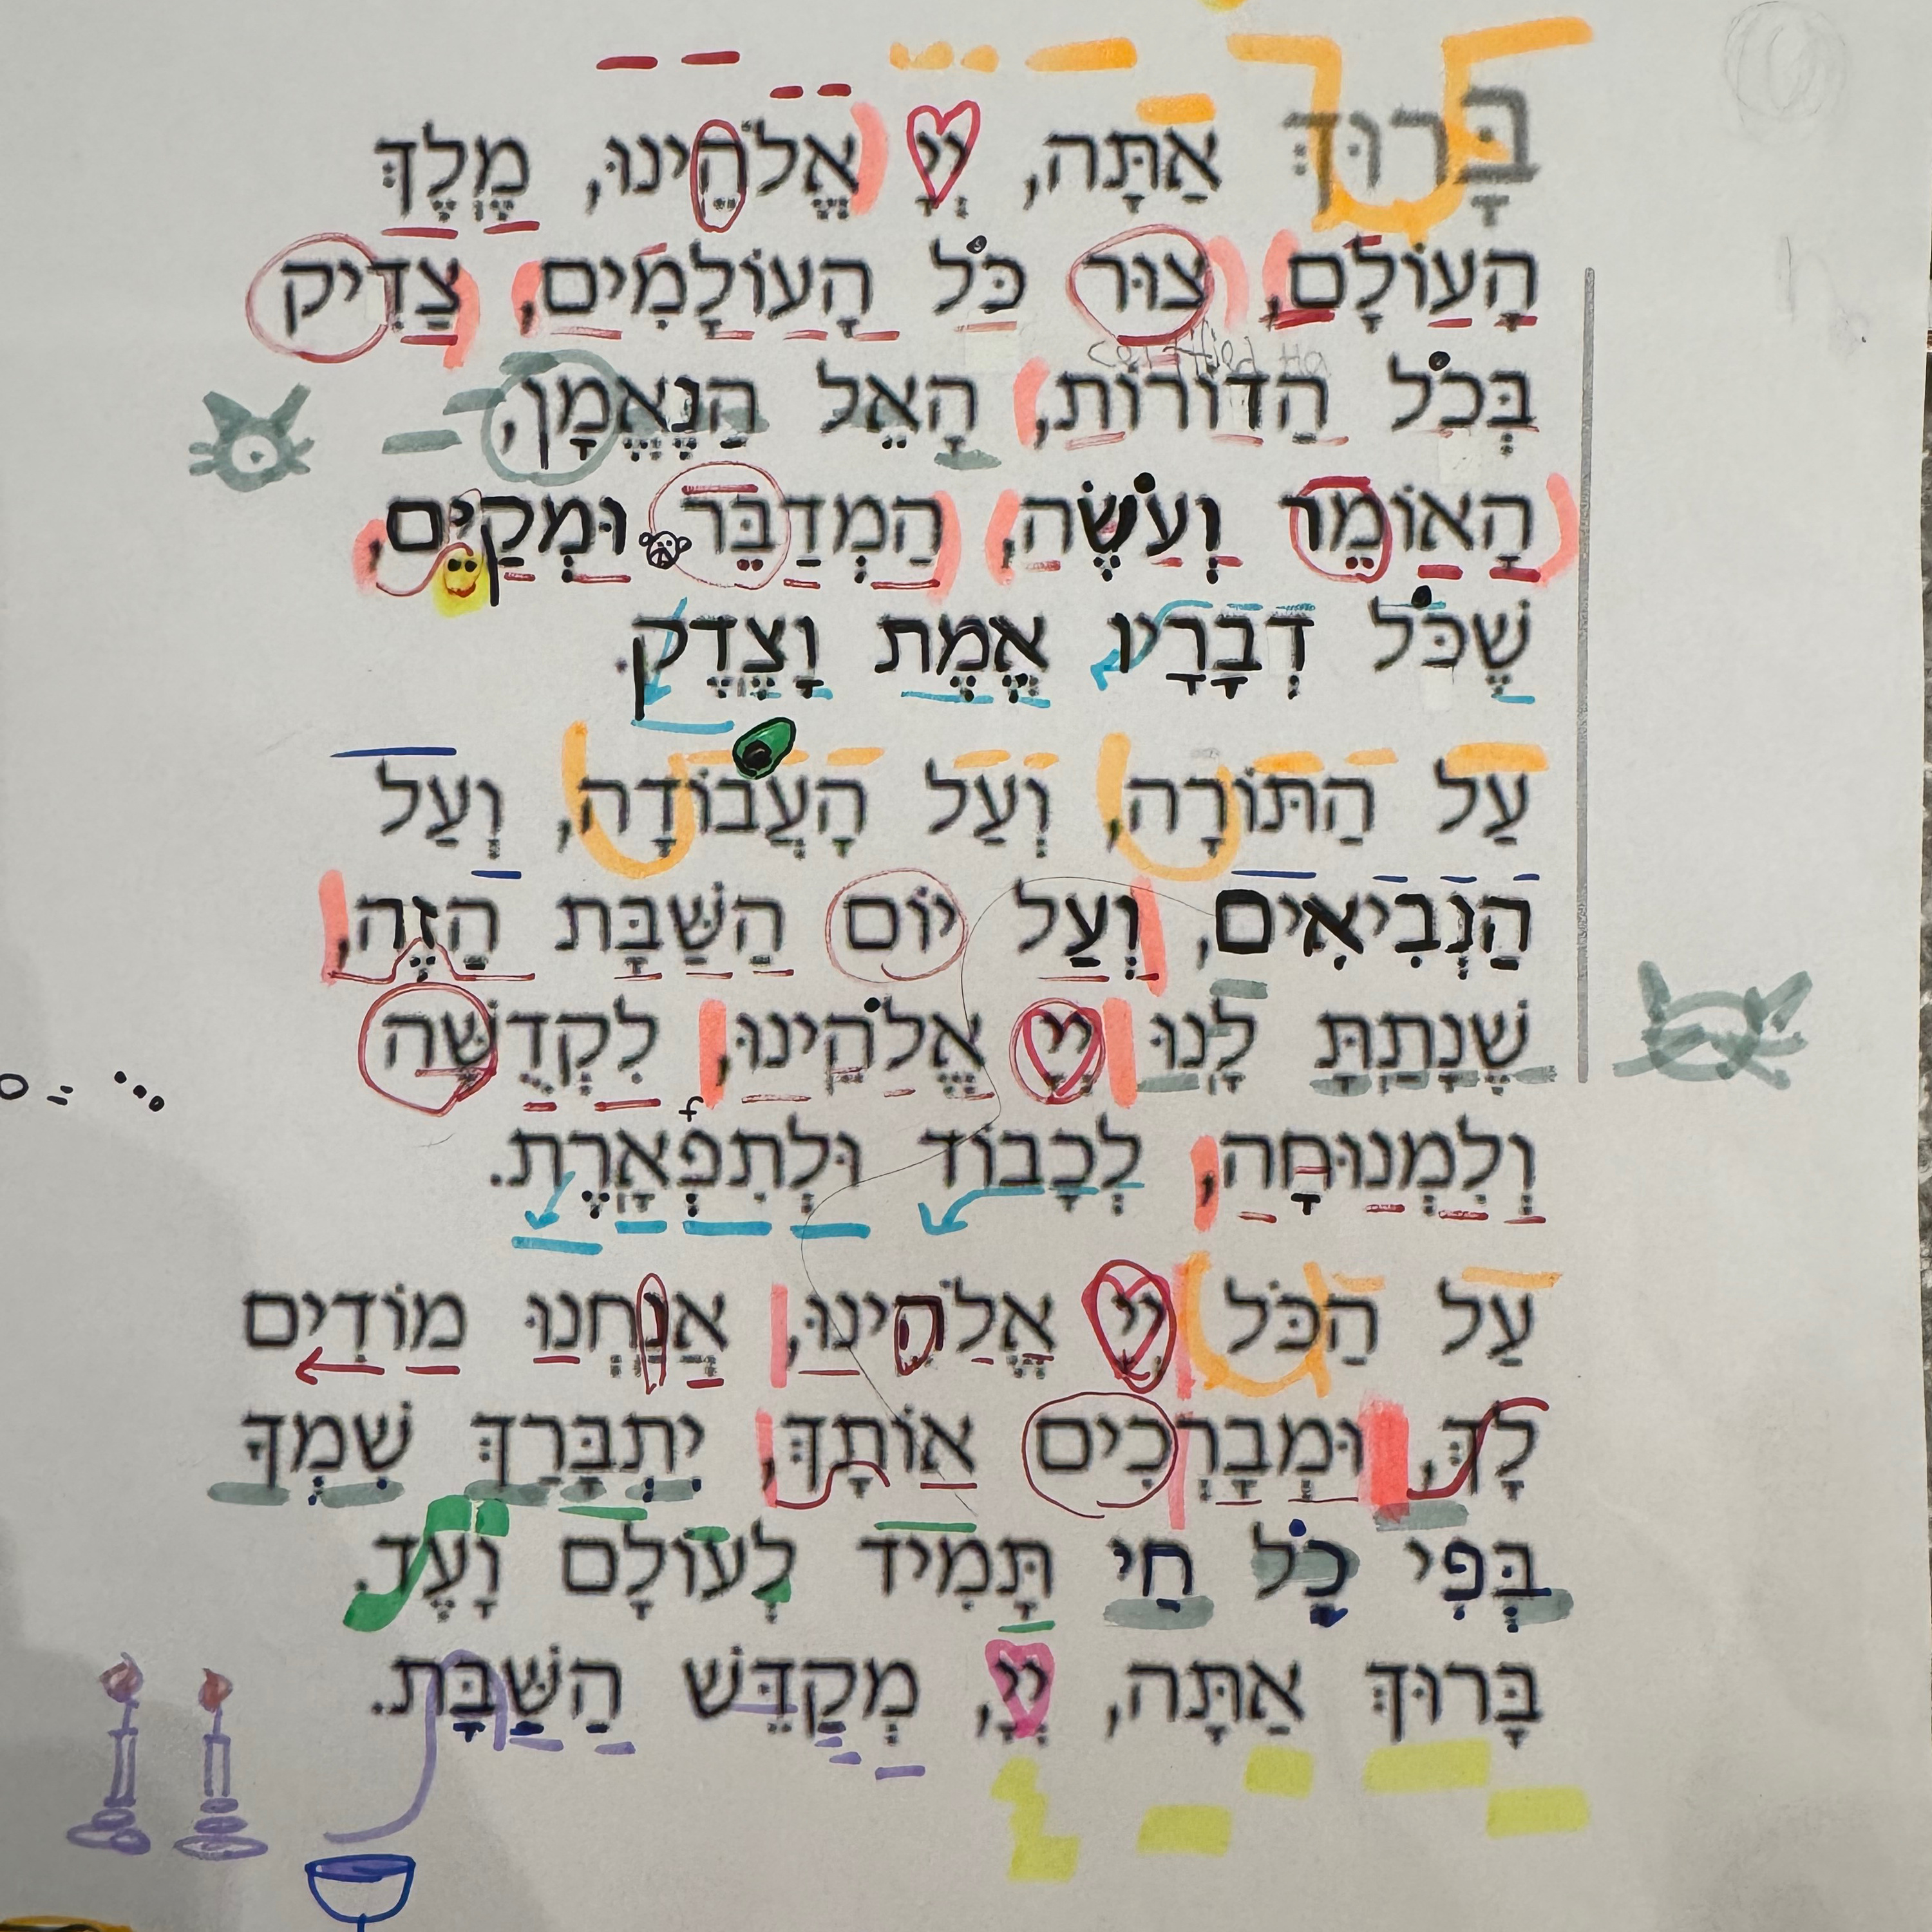 בָּרוּךְ אַתָּה, יְיָ אֱלֹהֵינוּ, מֶלֶךְ
הָעוֹלָם, צוּר כֹּל הָעוֹלָמִים, צַדִּיק
בְּכֹל הַדּוֹרוֹת, הָאֵל הַנֶּאֱמָן,
הָאוֹמֵר וְעֹשֶׂה, הַמְדַבֵּר וּמְקַיֵּם,
שֶׁכֹּל דְּבָרָיו אֱמֶת וָצֶדֶק.
עַל הַתּוֹרָה, וְעַל הָעֲבוֹדָה, וְעַל
הַנְּבִיאִים, וְעַל יוֹם הַשַּׁבָּת הַזֶּה,
שֶׁנָּתַתָּ לָנוּ יְיָ אֱלֹהֵינוּ, לִקְדֻשָּׁה
וְלִמְנוּחָה, לְכָבוֹד וּלְתִפְאָרֶת.
עַל הַכֹּל יְיָ אֱלֹהֵינוּ, אֲנַחְנוּ מוֹדִים
לָךְ, וּמְבָרְכִים אוֹתָךְ, יִתְבָּרַךְ שִׁמְךָ
בְּפִי כָֹּל חַי תָּמִיד לְעוֹלָם וָעֶד.
בָּרוּךְ אַתָּה, יְיָ, מְקַדֵּשׁ הַשַּׁבָּת.